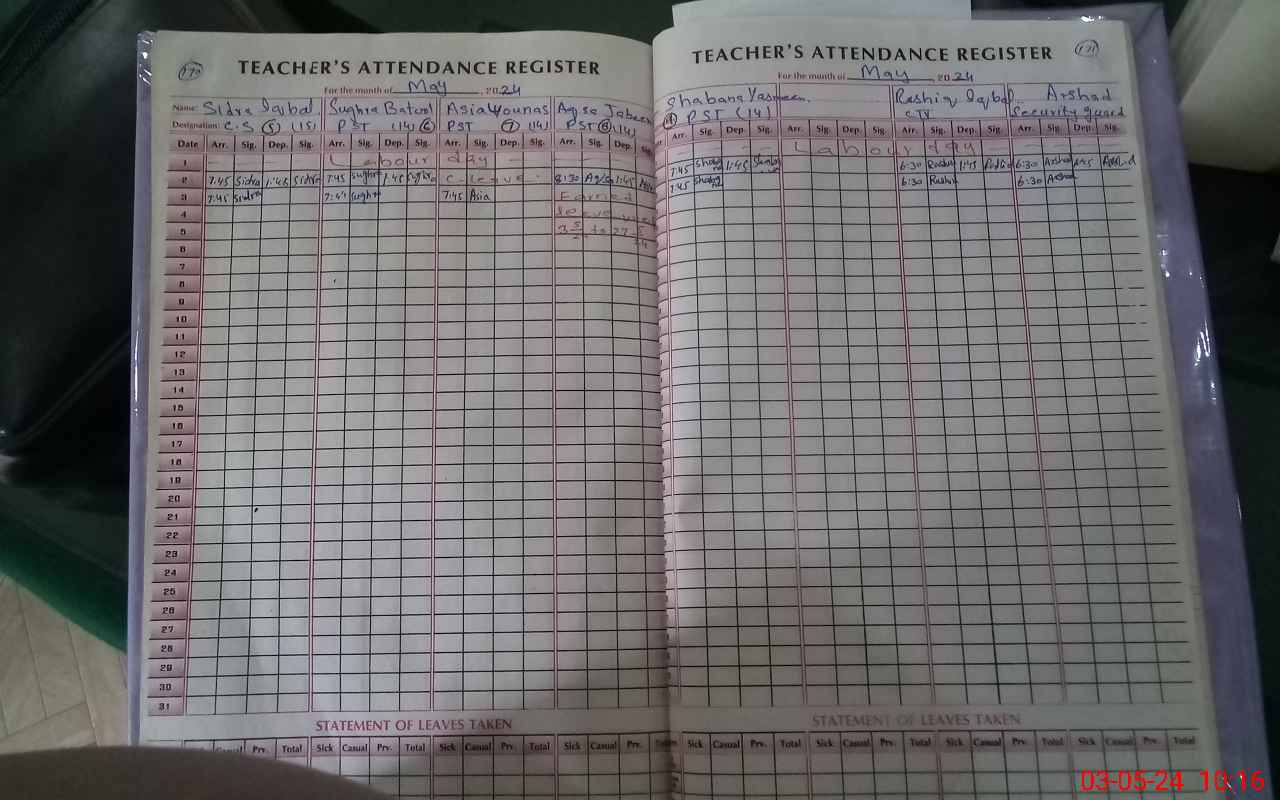 170
TEACHER'S ATTENDANCE REGISTER
For the month of May, 2024
Name: Sidra Iqbal Sughra Batool Asia Younas Aqse Jabeen
Designation: C.S (5) (15) PST (14) (6) PST (7) (14) PST (8) (14)
Date Arr. Sig. Dep. Sig. Arr. Sig. Dep. Sig. Arr. Sig. Dep. Sig. Arr. Sig. Dep. Sig.
1 Labour day
2 7:45 Sidra 1:45 Sidra 7:45 Sughra 1:45 Sughra C-leave 8:30 Aqsa 1:45
3 7:45 Sidra 7:45 Sughra 7:45 Asia Earned
4 leave
5
6
7
8
9
10
11
12
13
14
15
16
17
18
19
20
21
22
23
24
25
26
27
28
29
30
31
STATEMENT OF LEAVES TAKEN
Sick Casual Prv. Total Sick Casual Prv. Total Sick Casual Prv. Total Sick Casual Prv. Total
171
TEACHER'S ATTENDANCE REGISTER
For the month of May, 2024
Shabana Yasmeen. Rashid Iqbal Arshad
PST (14) Security guard
Arr. Sig. Dep. Sig. Arr. Sig. Dep. Sig. Arr. Sig. Dep. Sig. Arr. Sig. Dep. Sig.
Labour day
7:45 Shabana 1:45 Shabana 6:30 Rashid 1:45 Rashid 6:30 Arshad 1:45 Arshad
7:45 Shabana 6:30 Rashid 6:30 Arshad
STATEMENT OF LEAVES TAKEN
Sick Casual Prv. Total Sick Casual Prv. Total Sick Casual Prv. Total Sick Casual Prv. Total
03-05-24 10:16